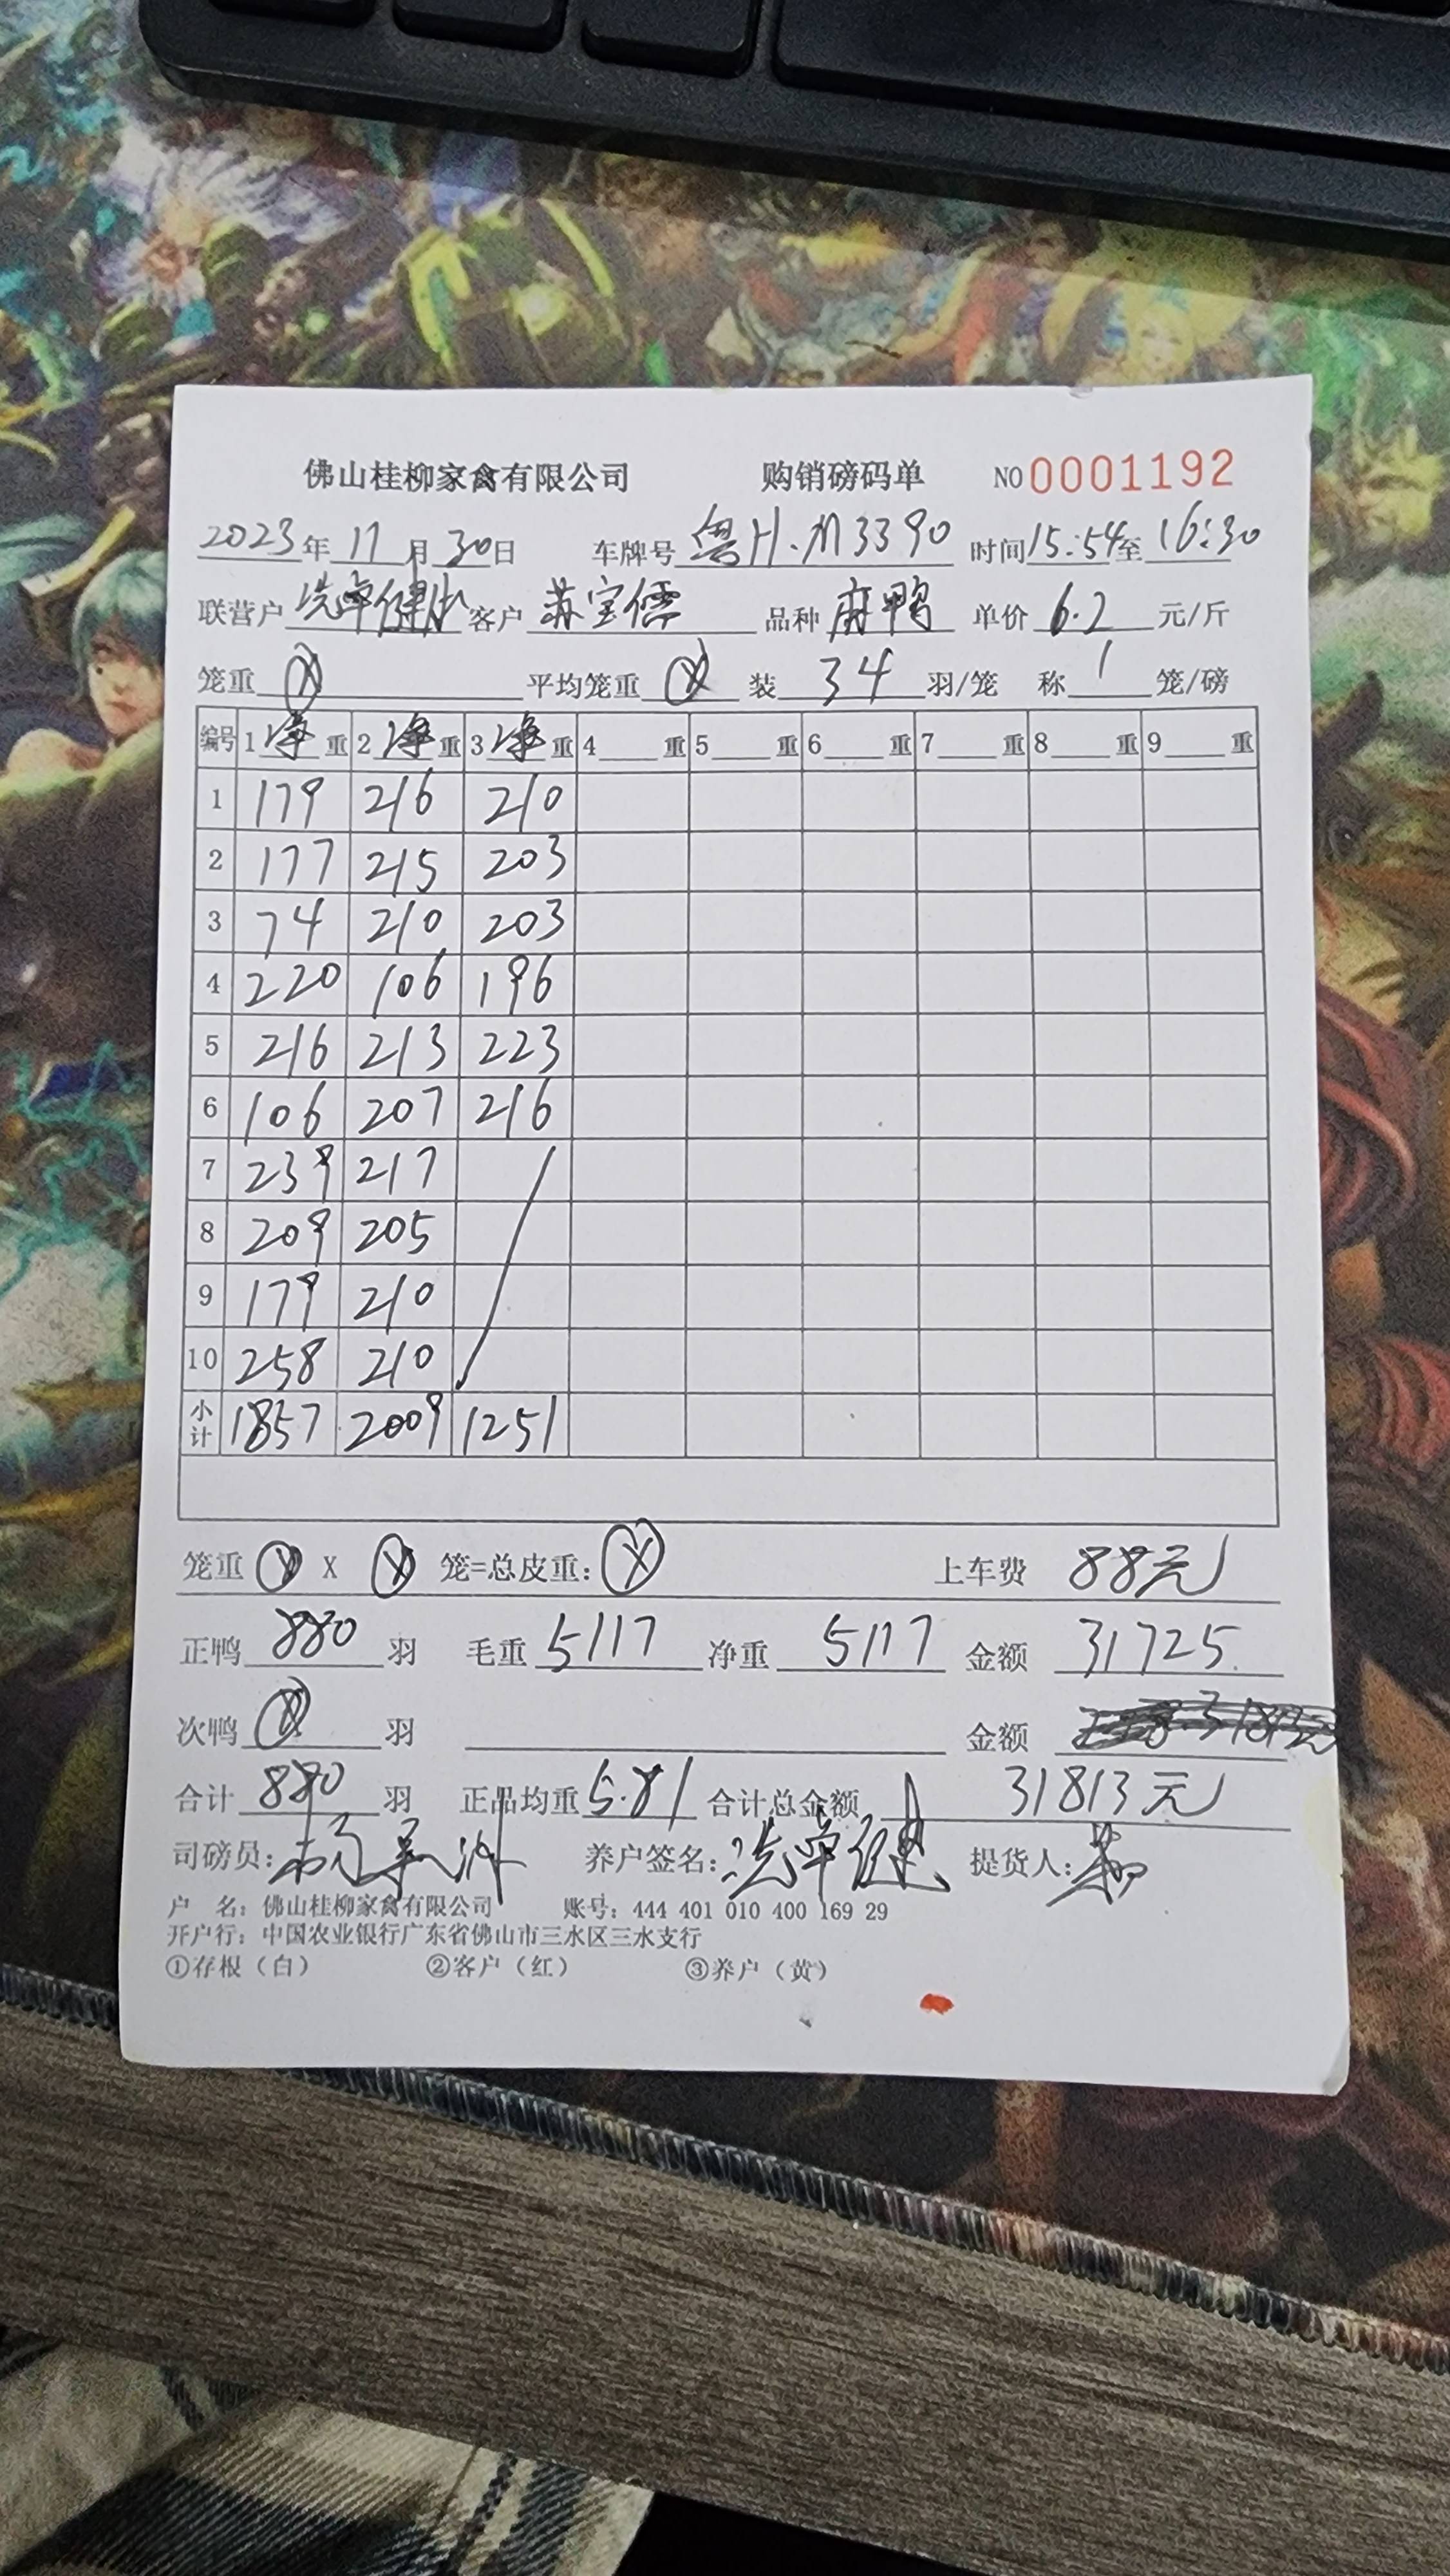 佛山桂柳家禽有限公司 购销磅码单 NO 0001192
2023年11月30日 车牌号 粤H.M3390 时间15:54至16:30
联营户 冼卓健 客户 苏宝儒 品种 麻鸭 单价 6.2 元/斤
笼重 平均笼重 装 34 羽/笼 称 1 笼/磅
编号 1净重 2净重 3净重 4 重 5 重 6 重 7 重 8 重 9 重
1 179 216 210
2 177 215 203
3 74 210 203
4 220 106 196
5 216 213 223
6 106 207 216
7 239 217
8 209 205
9 179 210
10 258 210
小计 1857 2009 1251
笼重 X 笼=总皮重: 上车费 88元
正鸭 880 羽 毛重 5117 净重 5117 金额 31725
次鸭 羽 金额
合计 880 羽 正品均重 5.81 合计总金额 31813元
司磅员: 养户签名: 冼卓健 提货人:
户 名: 佛山桂柳家禽有限公司 账号: 444 401 010 400 169 29
开户行: 中国农业银行广东省佛山市三水区三水支行
①存根（白） ②客户（红） ③养户（黄）